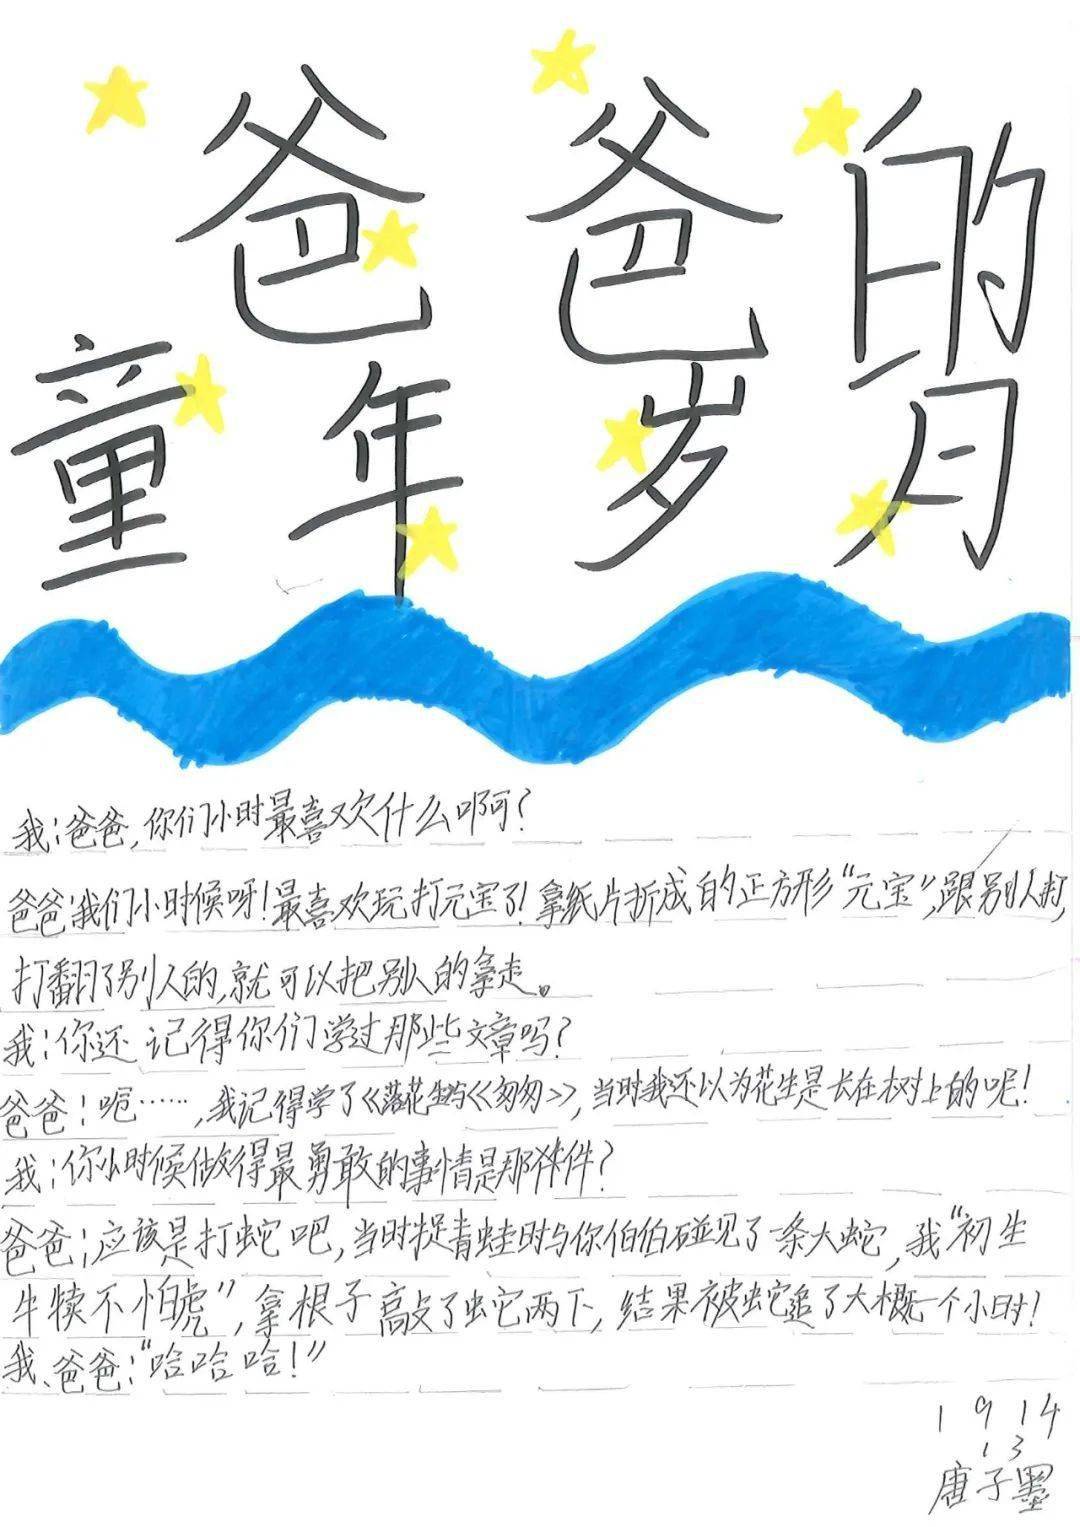 爸爸的
童年岁月
我:爸爸,你们小时最喜欢什么啊?
爸爸:我们小时候呀!最喜欢玩打元宝了!拿纸片折成的正方形“元宝”,跟别人打,
打翻了别人的,就可以把别人的拿走。
我:你还记得你们学过那些文章吗?
爸爸:呃……,我记得学了《落花生》与《匆匆》,当时我还以为花生是长在树上的呢!
我:你小时候做得最勇敢的事情是那件?
爸爸:应该是打蛇吧,当时捉青蛙时与你伯伯碰见了一条大蛇,我“初生
牛犊不怕虎”,拿根子敲了蛇两下,结果被蛇追了大概一个小时!
我、爸爸:“哈哈哈!”
1914
13
唐子墨